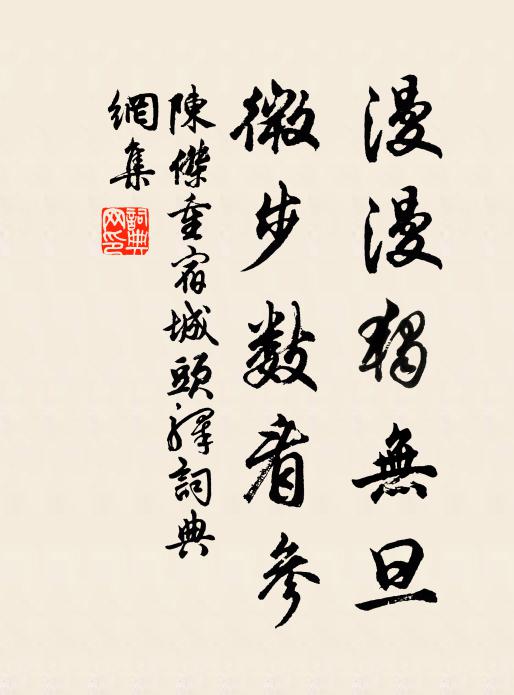 漫漫獨無旦
微步數看參
陳傑重宿城頭驛詞典
網集
詞典
网印